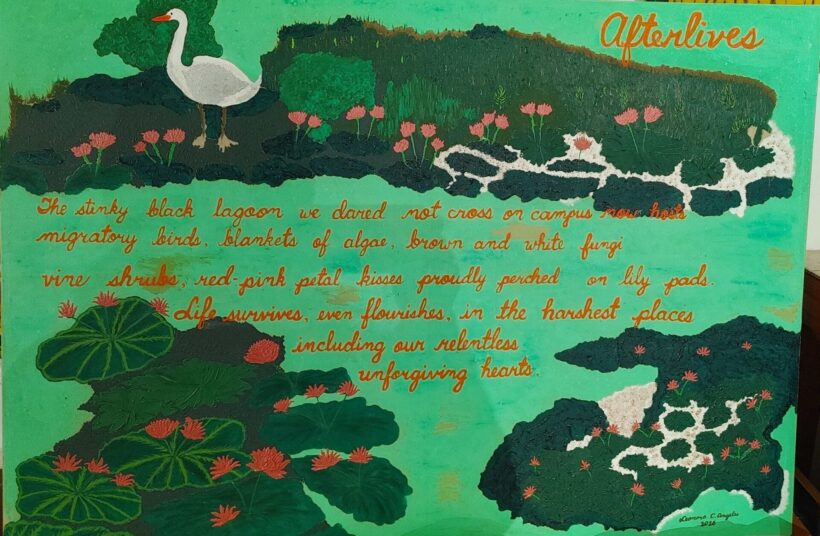 Afterlives
The stinky black lagoon we dared not cross on campus now hosts
migratory birds, blankets of algae, brown and white fungi
vine shrubs, red-pink petal kisses proudly perched on lily pads.
Life survives, even flourishes, in the harshest places
including our relentless
unforgiving hearts.
C. Angeles
2026